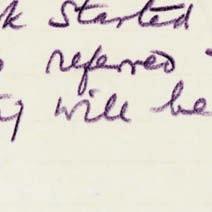 k started
referred
g will be